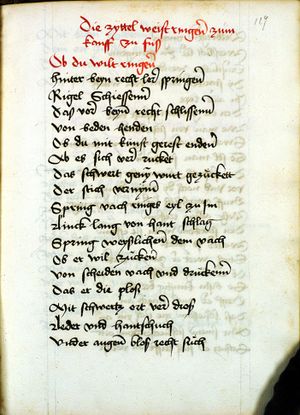 119
Die zyttel weist ringen zum
kampf zu fuß
Ob du wilt ringen
hinter beyn recht ler springen
Rigel Schiessenn
Das vor beyn recht schlissenn
von beden henden
Ob du mit kunst gerest enden
Ob es sich ver rucket
das schwert gein wirt gezuckett
Der stich vernym
Spring nach ringes eyl zu im
Rinck lang von hant schlag
Spring weyslichen dem nach
Ob er wil zucken
von scheiden nach und druckenn
Das er die plos
Mit schwertz ort ver dros
Leder und hantschuch
Vnder augen blos recht such